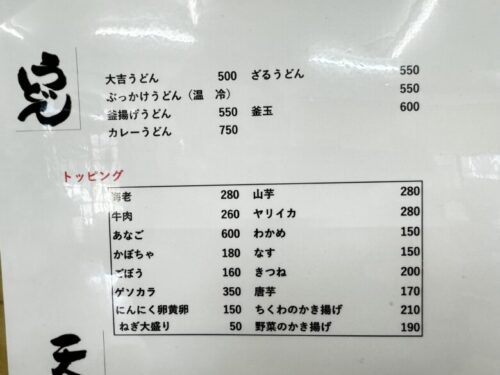 うどん
大吉うどん 500 ざるうどん 550
ぶっかけうどん（温　冷） 550
釜揚げうどん 550 釜玉 600
カレーうどん 750
トッピング
海老 280 山芋 280
牛肉 260 ヤリイカ 280
あなご 600 わかめ 150
かぼちゃ 180 なす 150
ごぼう 160 きつね 200
ゲソカラ 350 唐芋 170
にんにく卵黄卵 150 ちくわのかき揚げ 210
ねぎ大盛り 50 野菜のかき揚げ 190
天